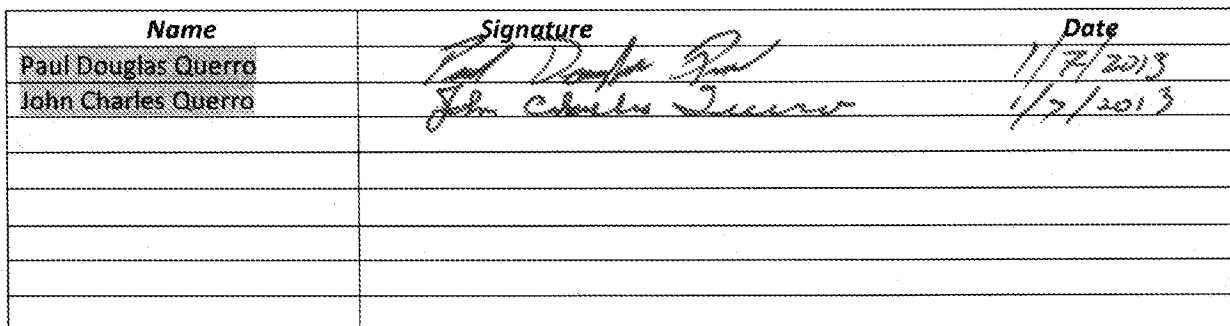 Name Signature Date
Paul Douglas Querro Paul Douglas Querro 1/7/2013
John Charles Querro John Charles Querro 1/7/2013